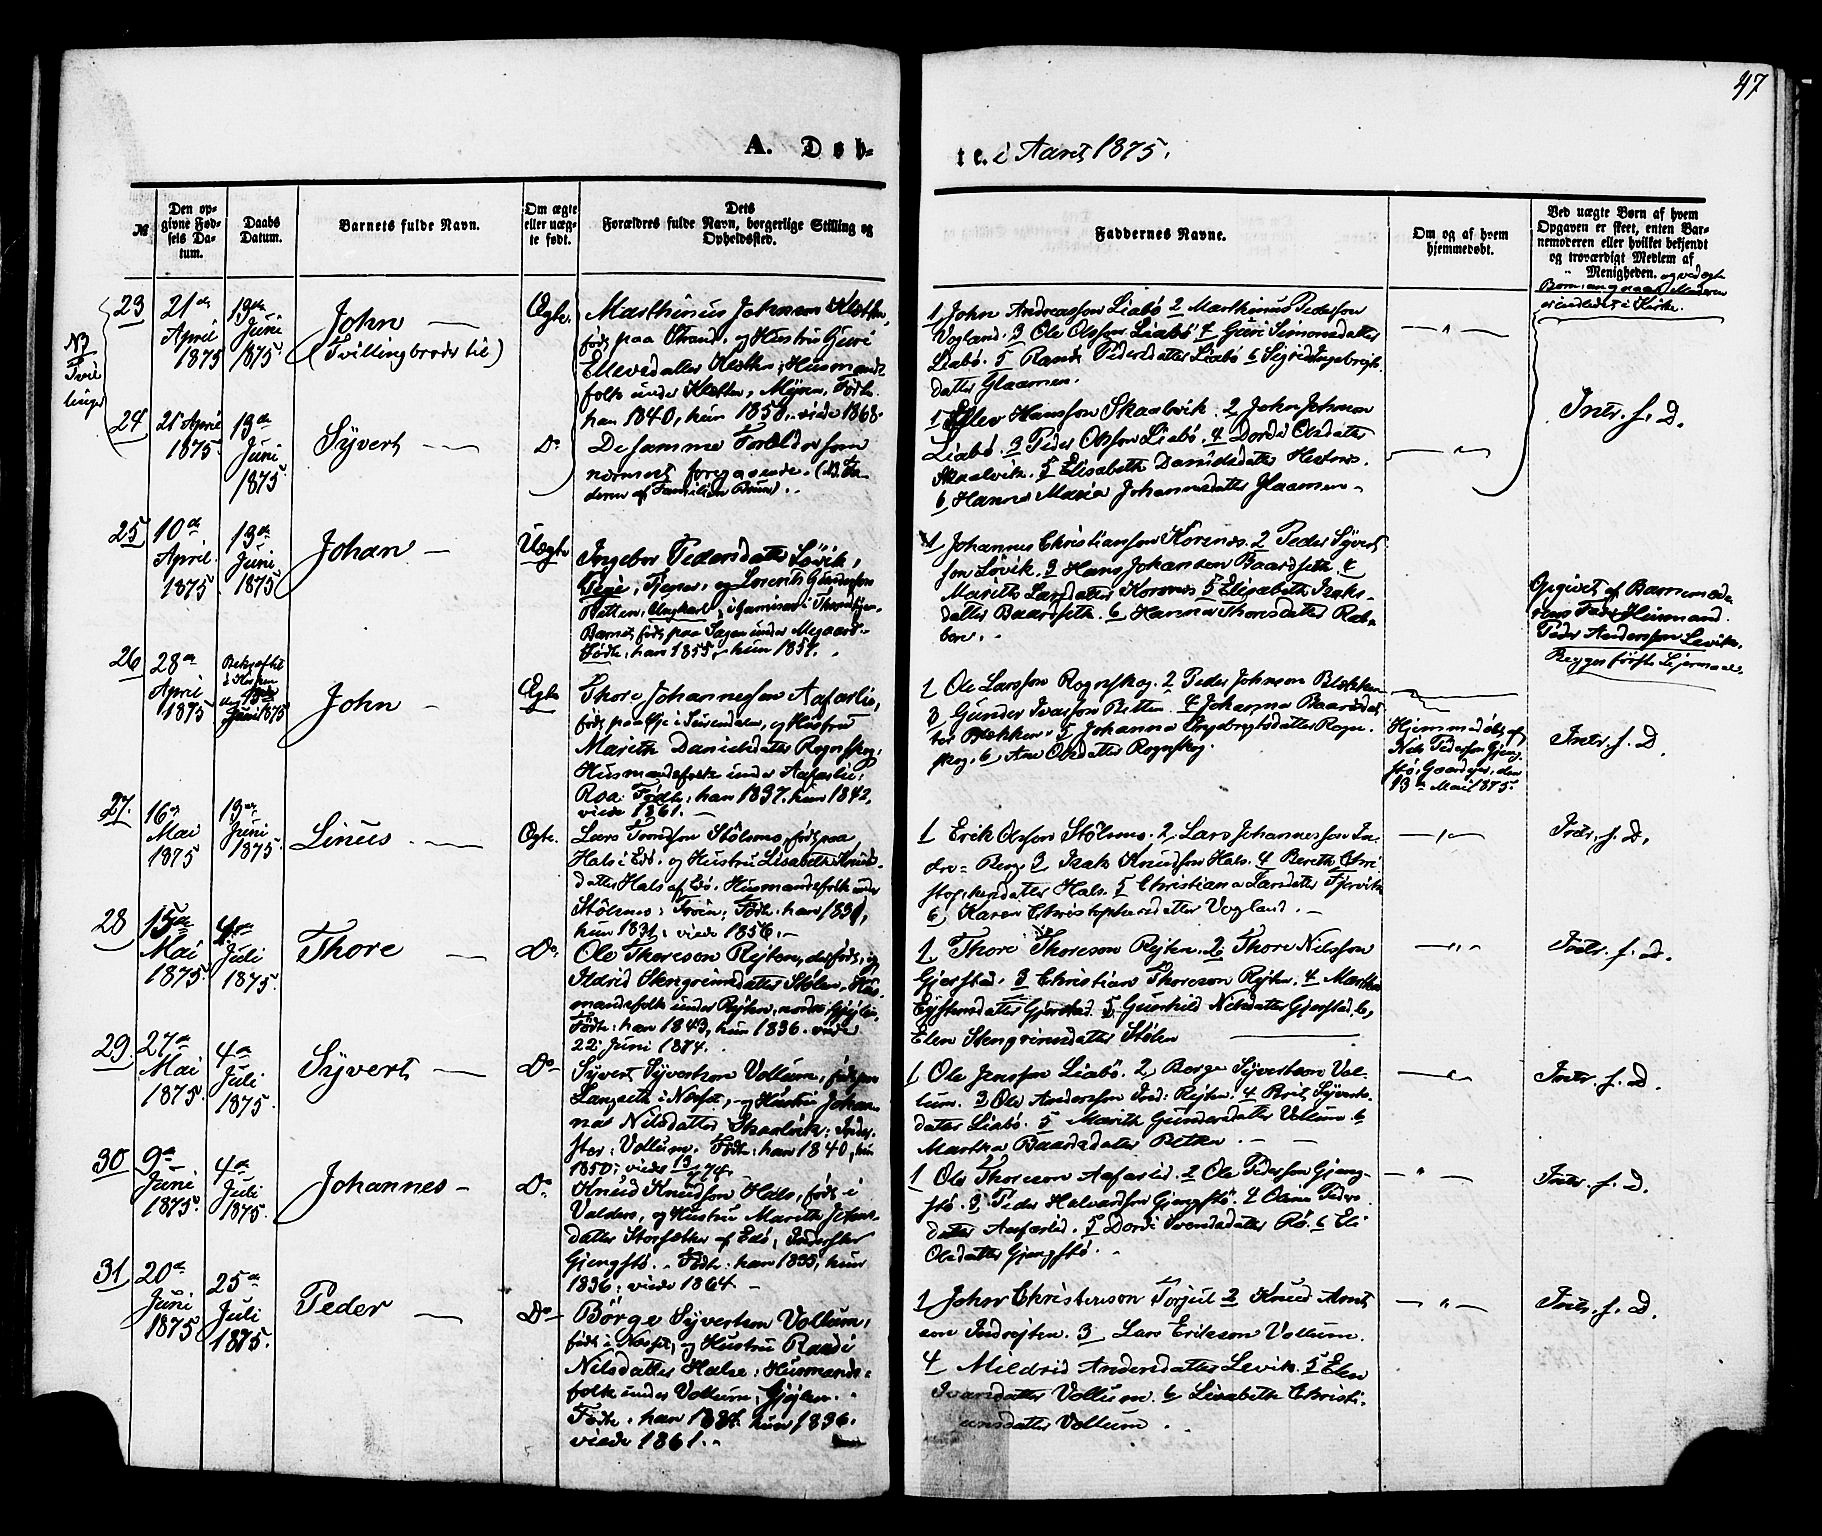 47
A. Døb-
te. i Aaret 1875.
№
Den op-
givne Fød-
sels Da-
tum.
Daabs
Datum.
Barnets fulde Navn.
Om ægte
eller uæg-
te født.
Dets
Forældres fulde Navn, borgerlige Stilling og
Opholdssted.
Faddernes Navne.
Om og af hvem
hjemmedøbt.
Ved uægte Børn af hvem
Opgaven er skeet, enten Bar-
nemoderen eller hvilket bekjendt
og troværdigt Medlem af
Menigheden.
NB
Tvil
linger
23
21de
April
1875
13de
Juni
1875.
John
(Tvillingbroder til)
Ægte.
Marthinus Johnsen Hesten,
født paa Strand, og Hustru Guri
Ellevsdatter Hesten; Husmands
folk under Hesten, Myren, Fødte:
han 1840, hun 1850, viede 1868.
1 John Andreassen Liabø 2 Marthinus Pedersøn
Vogland. 3 Ole Olsson Liabø 4 Guri Simonsdatter
Liabø. 5 Randi Pedersdatter Liabø 6 Sigrid Ingebrigts
datter Glaamen.
24
21 April
1875.
13de
Juni
1875.
Syvert
Do
De samme Forældre som
nærmest foregaaende.
deren af Familien
1 Ellev Hansson Skaalvik. 2 John Johnsen
Liabø. 3 Peder Olsson Liabø. 4 Dordi Olsdatter
Skaalvik. 5 Elisabeth Danielsdatter Hestnes.
6 Hanna Maria Johannesdatter Glaamen.
Intr. f. D.
25
10de
April
1875
13de
Juni
1875
Johan
Uægte
Ingebor Pedersdatter Løvik,
Pige, Tjener, og Lorents Gundersen
Retten, Ungkarl, i Garnison i Throndhjem.
Barnet født paa Sagen under Megaard.
Fødte: han 1855, hun 1854.
1 Johannes Christiansson Korsnes. 2 Peder Syvert
søn Løvik. 3 Hans Johansen Baardseth 4
Marith Larsdatter Korsnes 5 Elisabeth Isaks-
datter Baardseth. 6 Hanna Thoresdatter Rak-
Opgivet af Barnemode
rens Fader Husmand
Peder Andersson Levik.
Begges første Lejermaal.
26
28de
April
1875
Bekræftet
i Kirken
Juni 1875
John
Ægte
Thore Johannesen Aafarlie,
født paa i Surendalen, og Husfru
Marith Danielsdatter Rognskog;
Husmandsfolk under Aafarlie;
Roa. Fødte: han 1837, hun 1842,
viede 1861.
1 Ole Larsson Rognskog. 2 Peder Johnson Blekken
3 Gunder Ivarsson Retten. 4 Johanna Baardsdat
ter Blekken. 5 Johanna Ingebrigtsdatter Rogn-
skog. 6 Ane Olsdatter Rognskog.
Hjemmedøbt af
Nils Pedersen Gjeng
stø, Gaardejer, den
13de Mai 1875.
Intr. f. D.
27.
16de
Mai
1875
13de
Juni
1875.
Linus
Ægte.
Lars Stølsnes, født paa
Hals i Edø, og Hustru Lisabeth Knuds-
datter Hals af Edø. Husmandsfolk under
Stølsnes; Fødte: han 1831,
hun 1831; viede 1856.
1 Erik Olsson Stølsnes. 2 Lars Johannesson In-
dre-Berg. 3 Isak Knudson Hals. 4 Bereth Chri
stophersdatter Hals. 5 Christiana Larsdatter Fjervik
6. Karen Christophersdatter Vogland.
Intr. f. D.
28
15de
Mai
1875
4de
Juli
1875.
Thore
Do.
Ole Thoresen Røjten, der født, og
Ildrid Stengrimsdatter Stølen, Hus-
mandsfolk under Røjten, nordre
Fødte: han 1843, hun 1836. viede
22 Juni 1874.
1 Thore Thoreson Rejten. 2 Thore Nilsson
Gjerstad. 3 Christian Thoreson Røjten. 4 Martha
Eystensdatter Gjerstad. 5 Gunhild Nilsdatter Gjerstad. 6,
Elen Stengrimsdatter Stølen
Intr. f. D.
29
27de
Mai
1875
4de
Juli
1875.
Syvert
Do
Syvert Syvertsen Vollum, født paa
Langseth i Nesset, og Hustru Johan-
na Nilsdatter Skaalvik; Inder-
ster; Vollum. Fødte: han 1840, hun
1850; viede 74.
1 Ole Jensson Liabø. 2 Børge Syvertsen Vol-
lum. 3 Ole Andersson Ind: Rejten. 4 Brit Syverts
datter Liabø. 5 Marith Gundersdatter Vollum 6
Martha Baardsdatter Retten.
Intr. f. D.
30
9de
Juni
1875.
4de
Juli
1875.
Johannes
Do.
Knud Knudson Hals, født i
Valders, og Hustru Marith Johns-
datter Storsæther af Edø; Inderster
Gjengstø. Fødte: han 1835, hun
1836; viede 1864.
1 Ole Thoreson Aafarlid. 2 Ole Pedersøn Gjeng-
stø. 3 Peder Halvardson Gjengstø. 4 Peders
datter Aafarlid. 5 Dordi Svendsdatter Rø. 6 Eli
Olsdatter Gjengstø.
Intr. f. D.
31
20de
Juni
1875
25de
Juli
1875.
Peder
Do
Børge Syvertsen Vollum,
født i Nesset, og Hustru Raadi
Nilsdatter Halse; Husmands-
folk under Vollum; Gjøjlen.
Fødte: han 1834. hun 1836.
viede 1861.
1 John Christenson Torjul 2 Knud Arnt
son Indrejten. 3 Lars Erikson Vollum.
4 Mildrid Andersdatter Levik. 5 Elen
Ivarsdatter Vollum. 6 Lisabeth Christi-
ansdatter Vollum.
Intr. f. D.